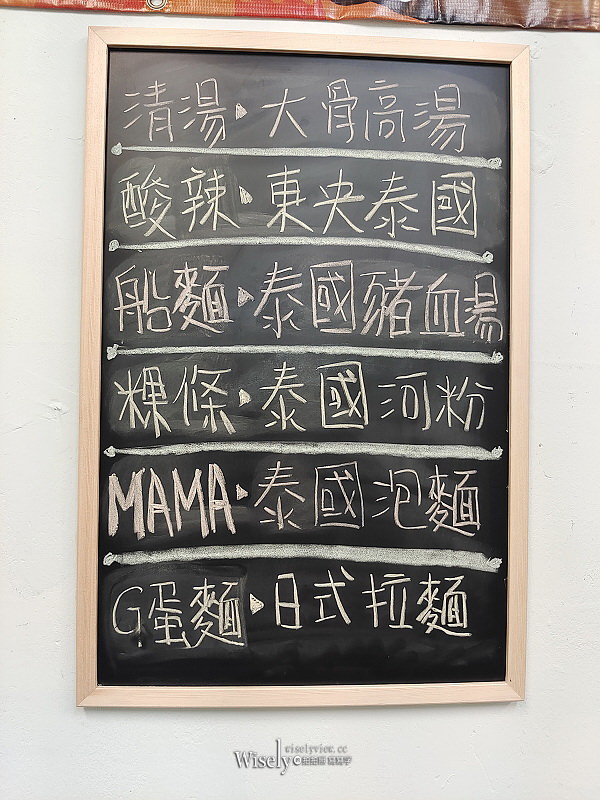 清湯▸大骨高湯
酸辣▸東央泰國
船麵▸泰國豬血湯
粿條▸泰國河粉
MAMA▸泰國泡麵
G蛋麵▸日式拉麵
wiselyview.cc
Wisely